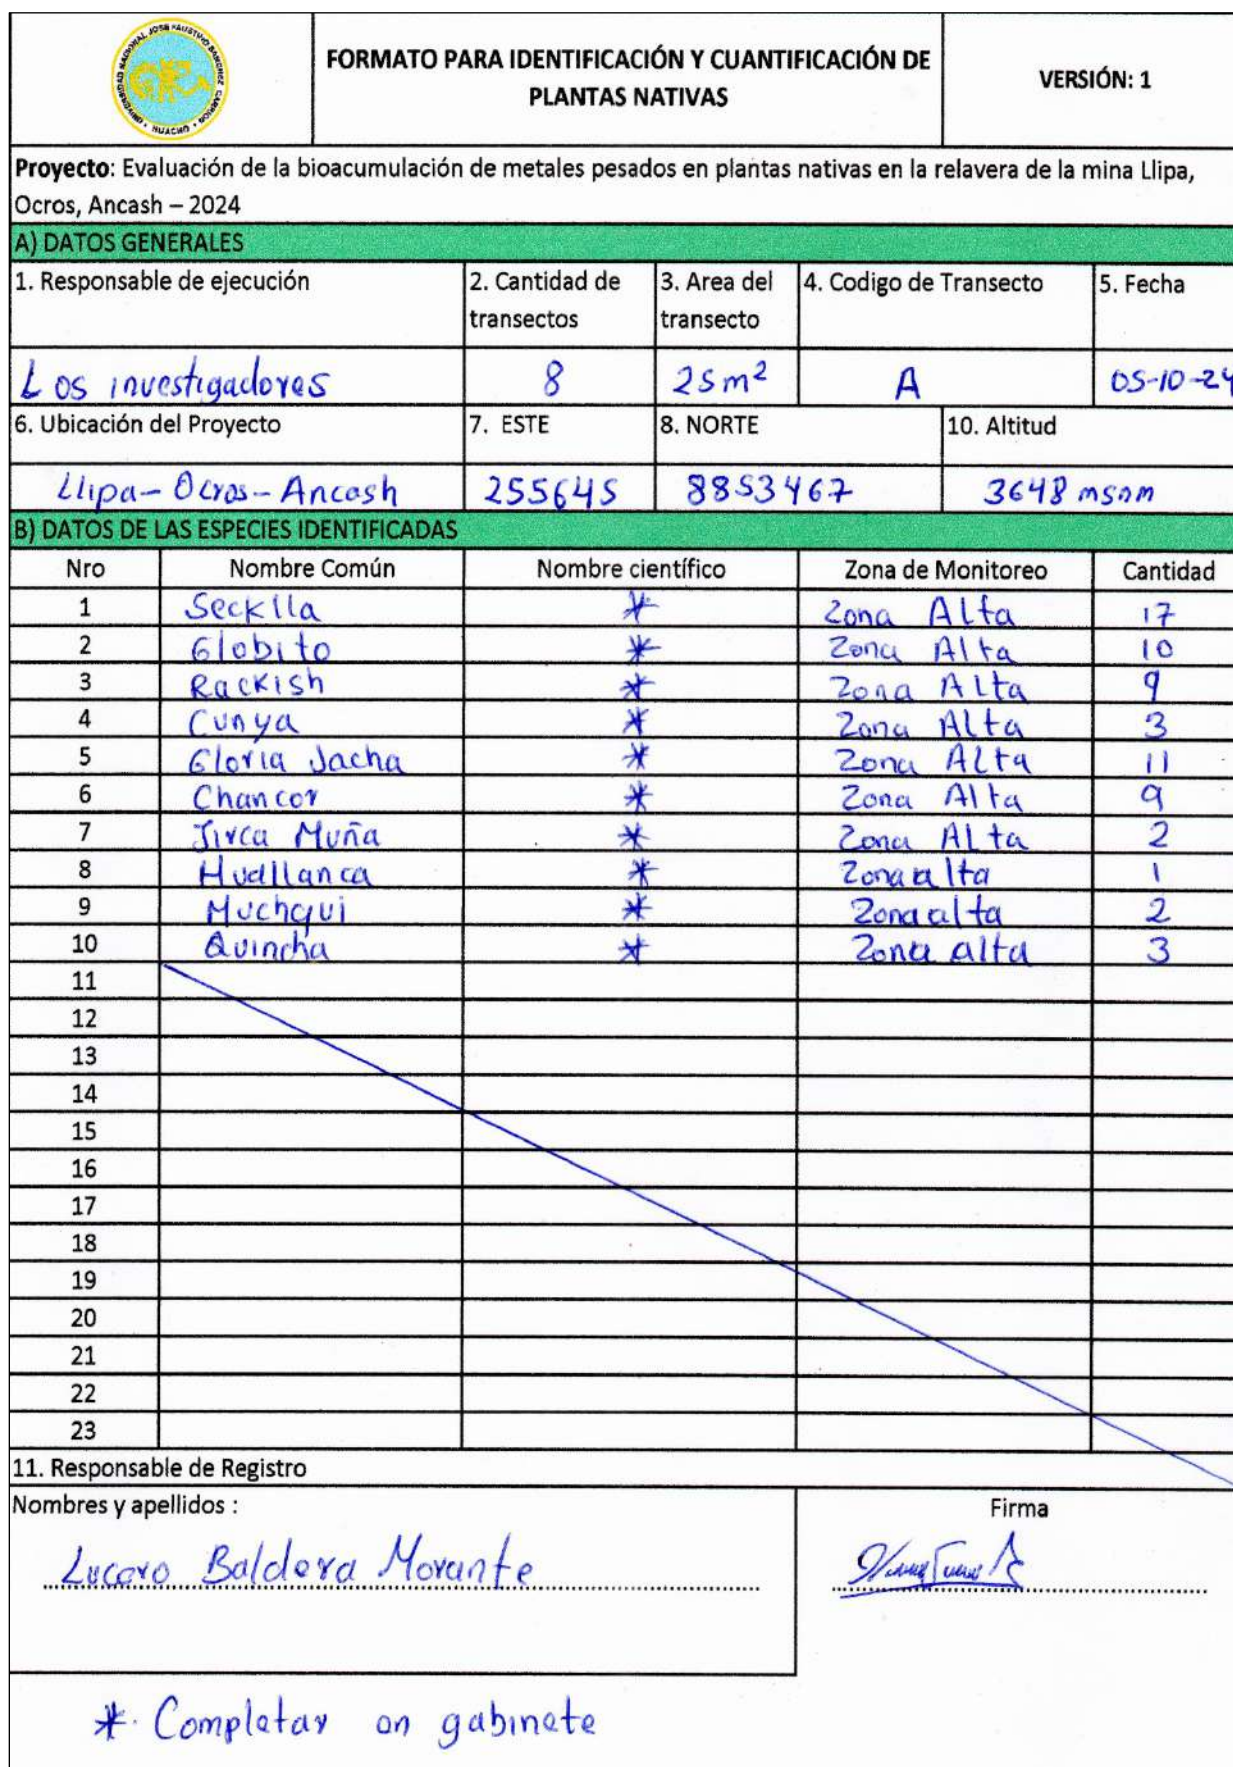 UNIVERSIDAD NACIONAL JOSE FAUSTINO SANCHEZ CARRION • HUACHO •
FORMATO PARA IDENTIFICACIÓN Y CUANTIFICACIÓN DE
PLANTAS NATIVAS
VERSIÓN: 1
Proyecto: Evaluación de la bioacumulación de metales pesados en plantas nativas en la relavera de la mina Llipa,
Ocros, Ancash – 2024
A) DATOS GENERALES
1. Responsable de ejecución
2. Cantidad de
transectos
3. Area del
transecto
4. Codigo de Transecto
5. Fecha
Los investigadores 8 25 m² A 05-10-24
6. Ubicación del Proyecto 7. ESTE 8. NORTE 10. Altitud
Llipa-Ocros-Ancash 255645 8853467 3648 msnm
B) DATOS DE LAS ESPECIES IDENTIFICADAS
Nro Nombre Común Nombre científico Zona de Monitoreo Cantidad
1 Secklla * Zona Alta 17
2 Globito * Zona Alta 10
3 Rackish * Zona Alta 9
4 Cunya * Zona Alta 3
5 Gloria Jacha * Zona Alta 11
6 Chancor * Zona Alta 9
7 Jirca Muña * Zona Alta 2
8 Huallanca * Zona alta 1
9 Muchqui * Zona alta 2
10 Quincha * Zona alta 3
11
12
13
14
15
16
17
18
19
20
21
22
23
11. Responsable de Registro
Nombres y apellidos :
Lucero Baldera Morante
Firma
* Completar en gabinete